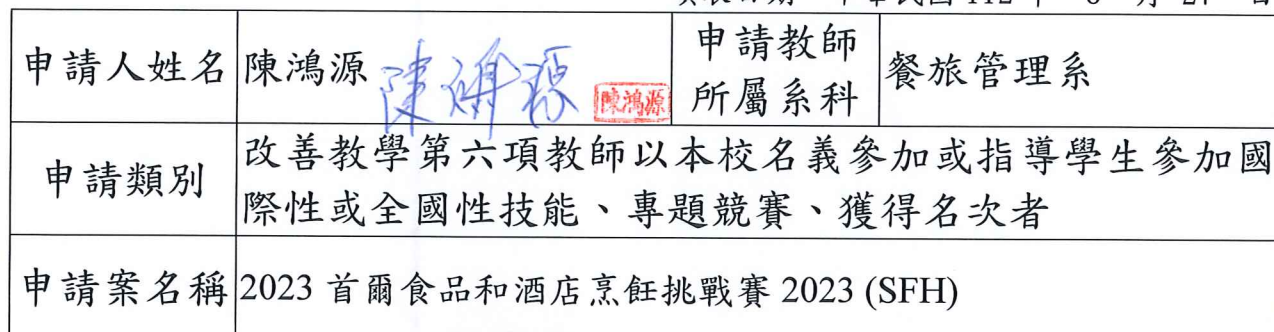 中華民國 112 年 6 月 27 日
申請人姓名 陳鴻源 陳鴻源 陳鴻源 申請教師所屬系科 餐旅管理系
申請類別 改善教學第六項教師以本校名義參加或指導學生參加國
際性或全國性技能、專題競賽、獲得名次者
申請案名稱 2023 首爾食品和酒店烹飪挑戰賽 2023 (SFH)